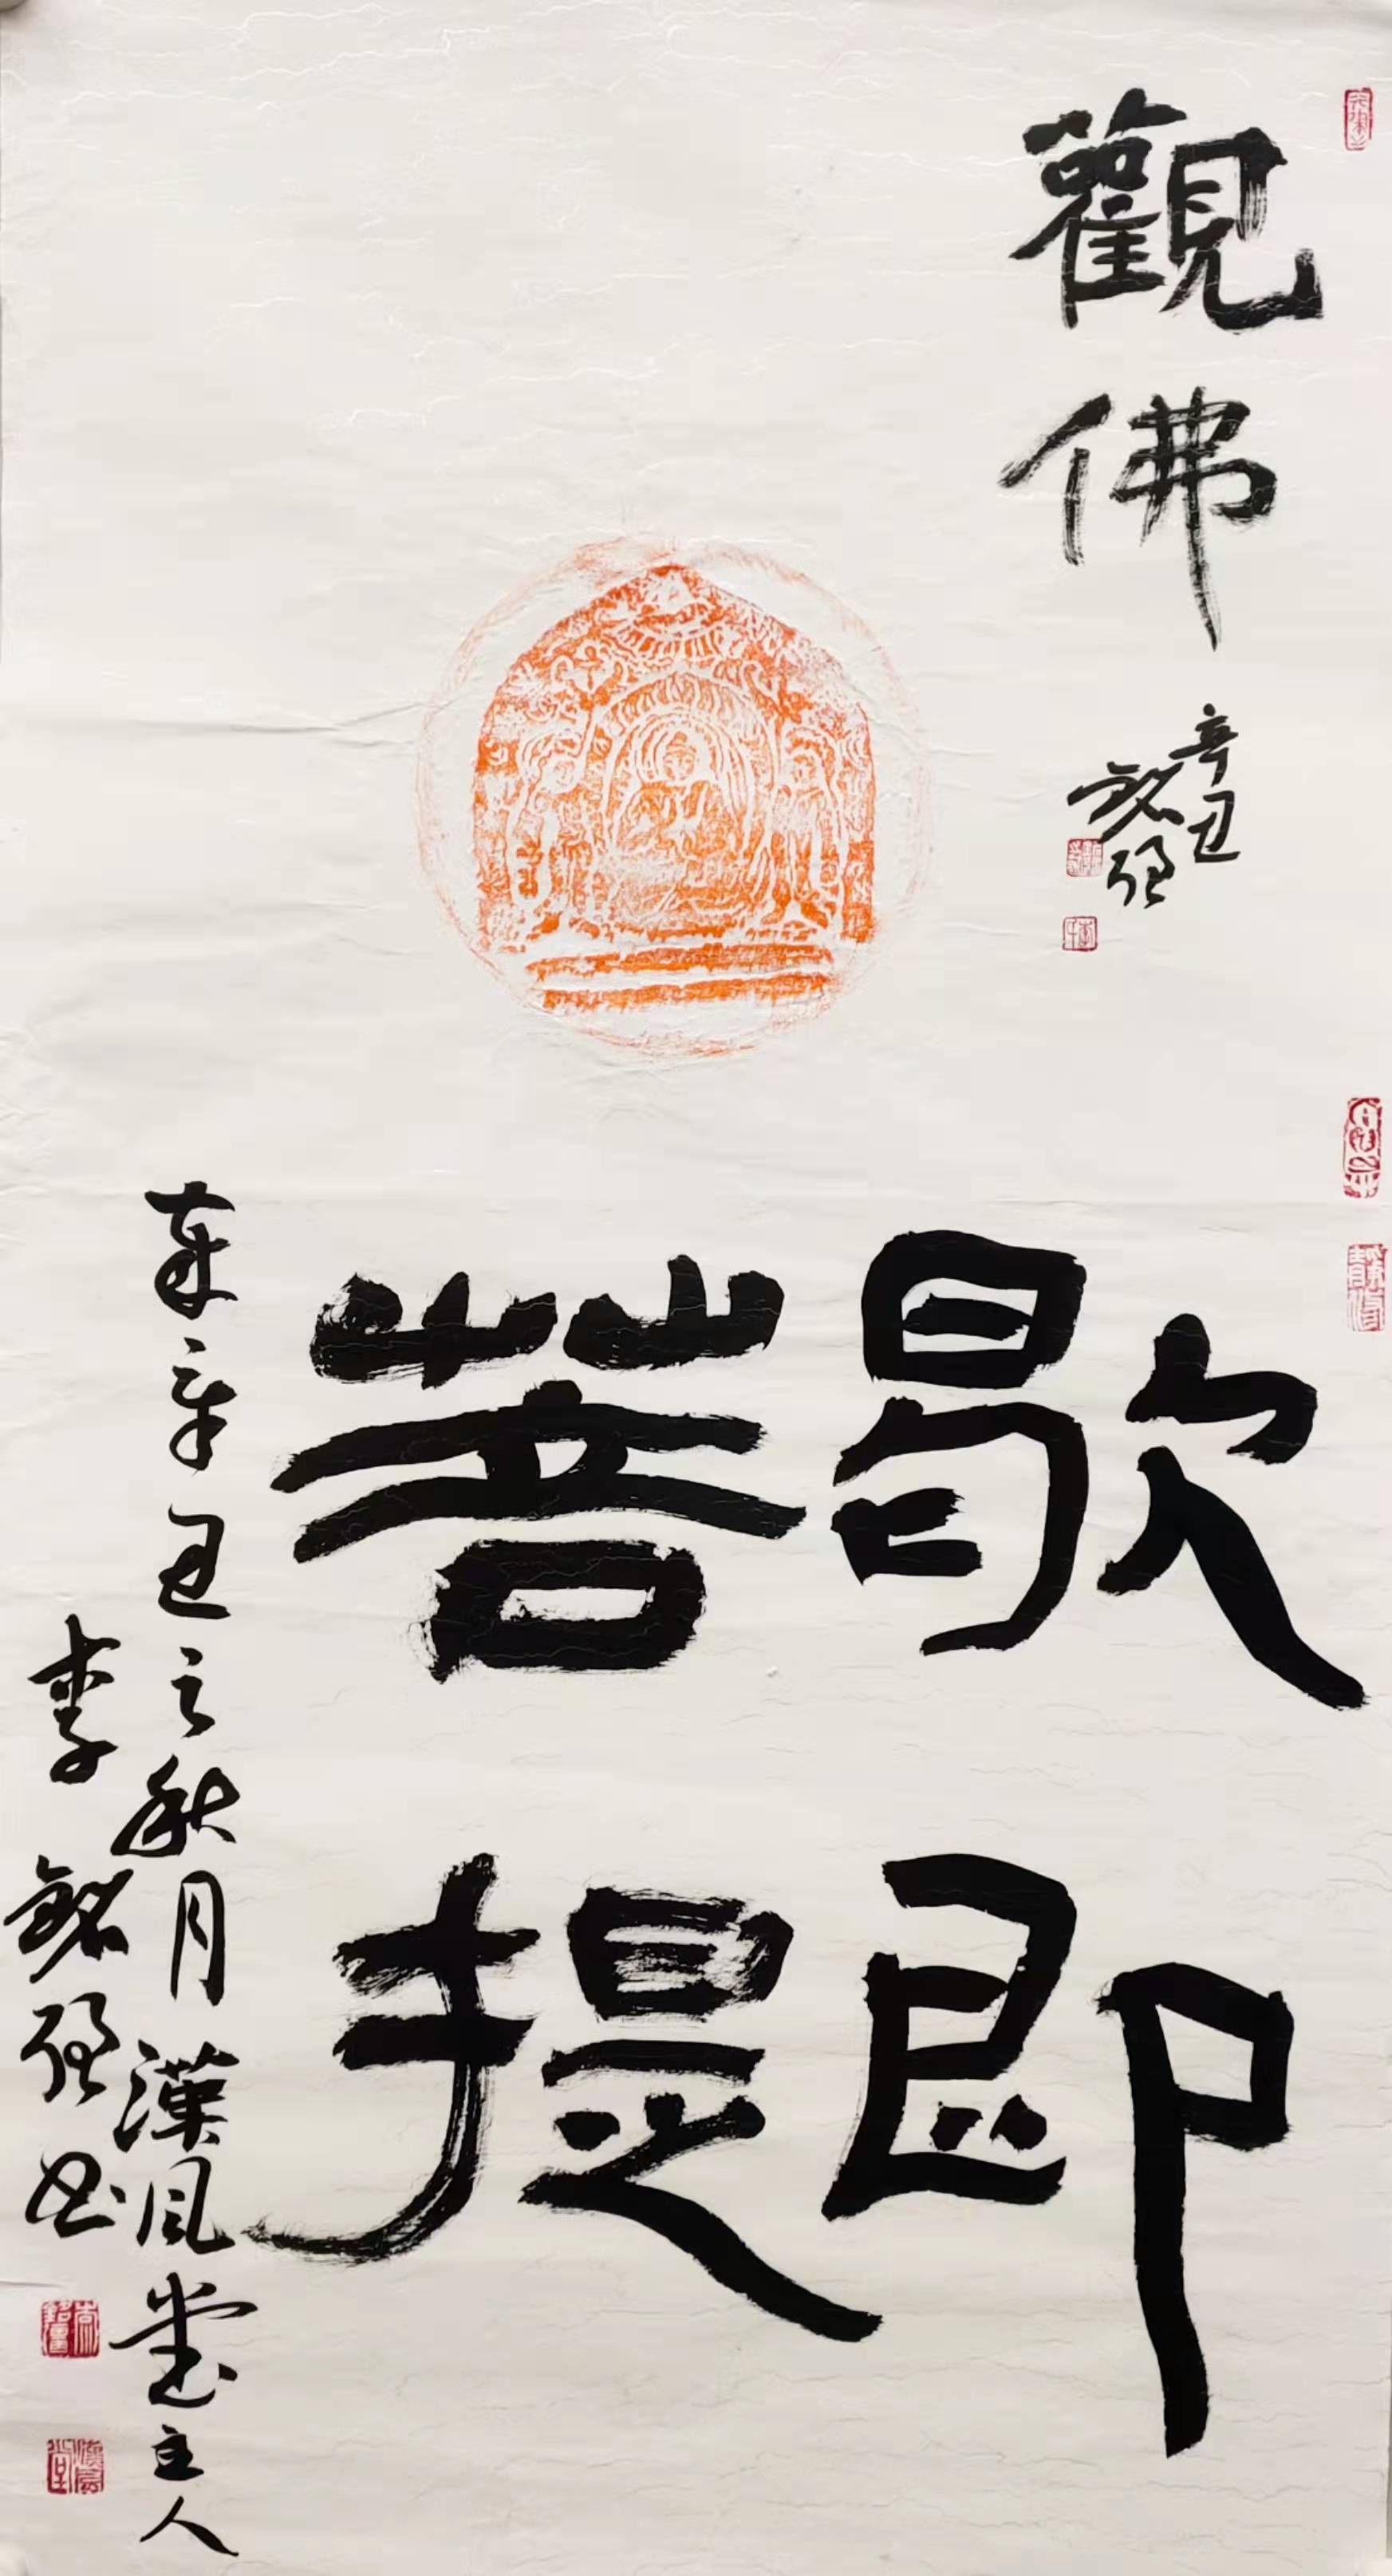 觀佛
辛丑
銘強
歇即
菩提
辛丑之秋月漢風堂主人
李銘強书